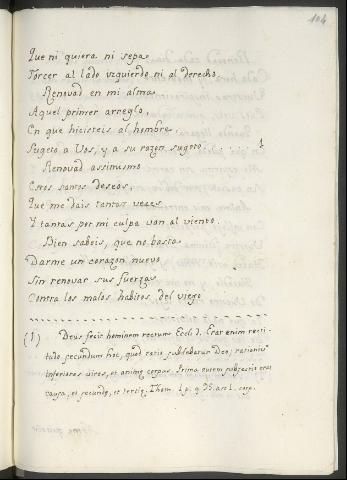 104
Que ni quiera ni sepa
Torcer al lado yzquierdo ni al derecho.
Renovad en mi alma
Aquel primer arreglo,
En que hicisteis al hombre,
Sugeto a Vos, y a su razon sugeto ...... 1
Renovad assimismo
Estos santos deseos,
Que me dais tantas veces
Y tantas por mi culpa van al viento.
Bien sabeis, que no basta
Darme un corazon nuevo
Sin renovar sus fuerzas
Contra los malos habitos del viejo
(1) Deus fecit hominem rectum Eccli 7. Erat enim recti-
tudo secundum hoc, quod ratio subdebatur Deo; rationi
inferiores vires, et animæ corpus. Prima autem subjectio erat
causa, et secundæ, et tertiæ; Thom. 1 p. q. 95. art. 1. corp.